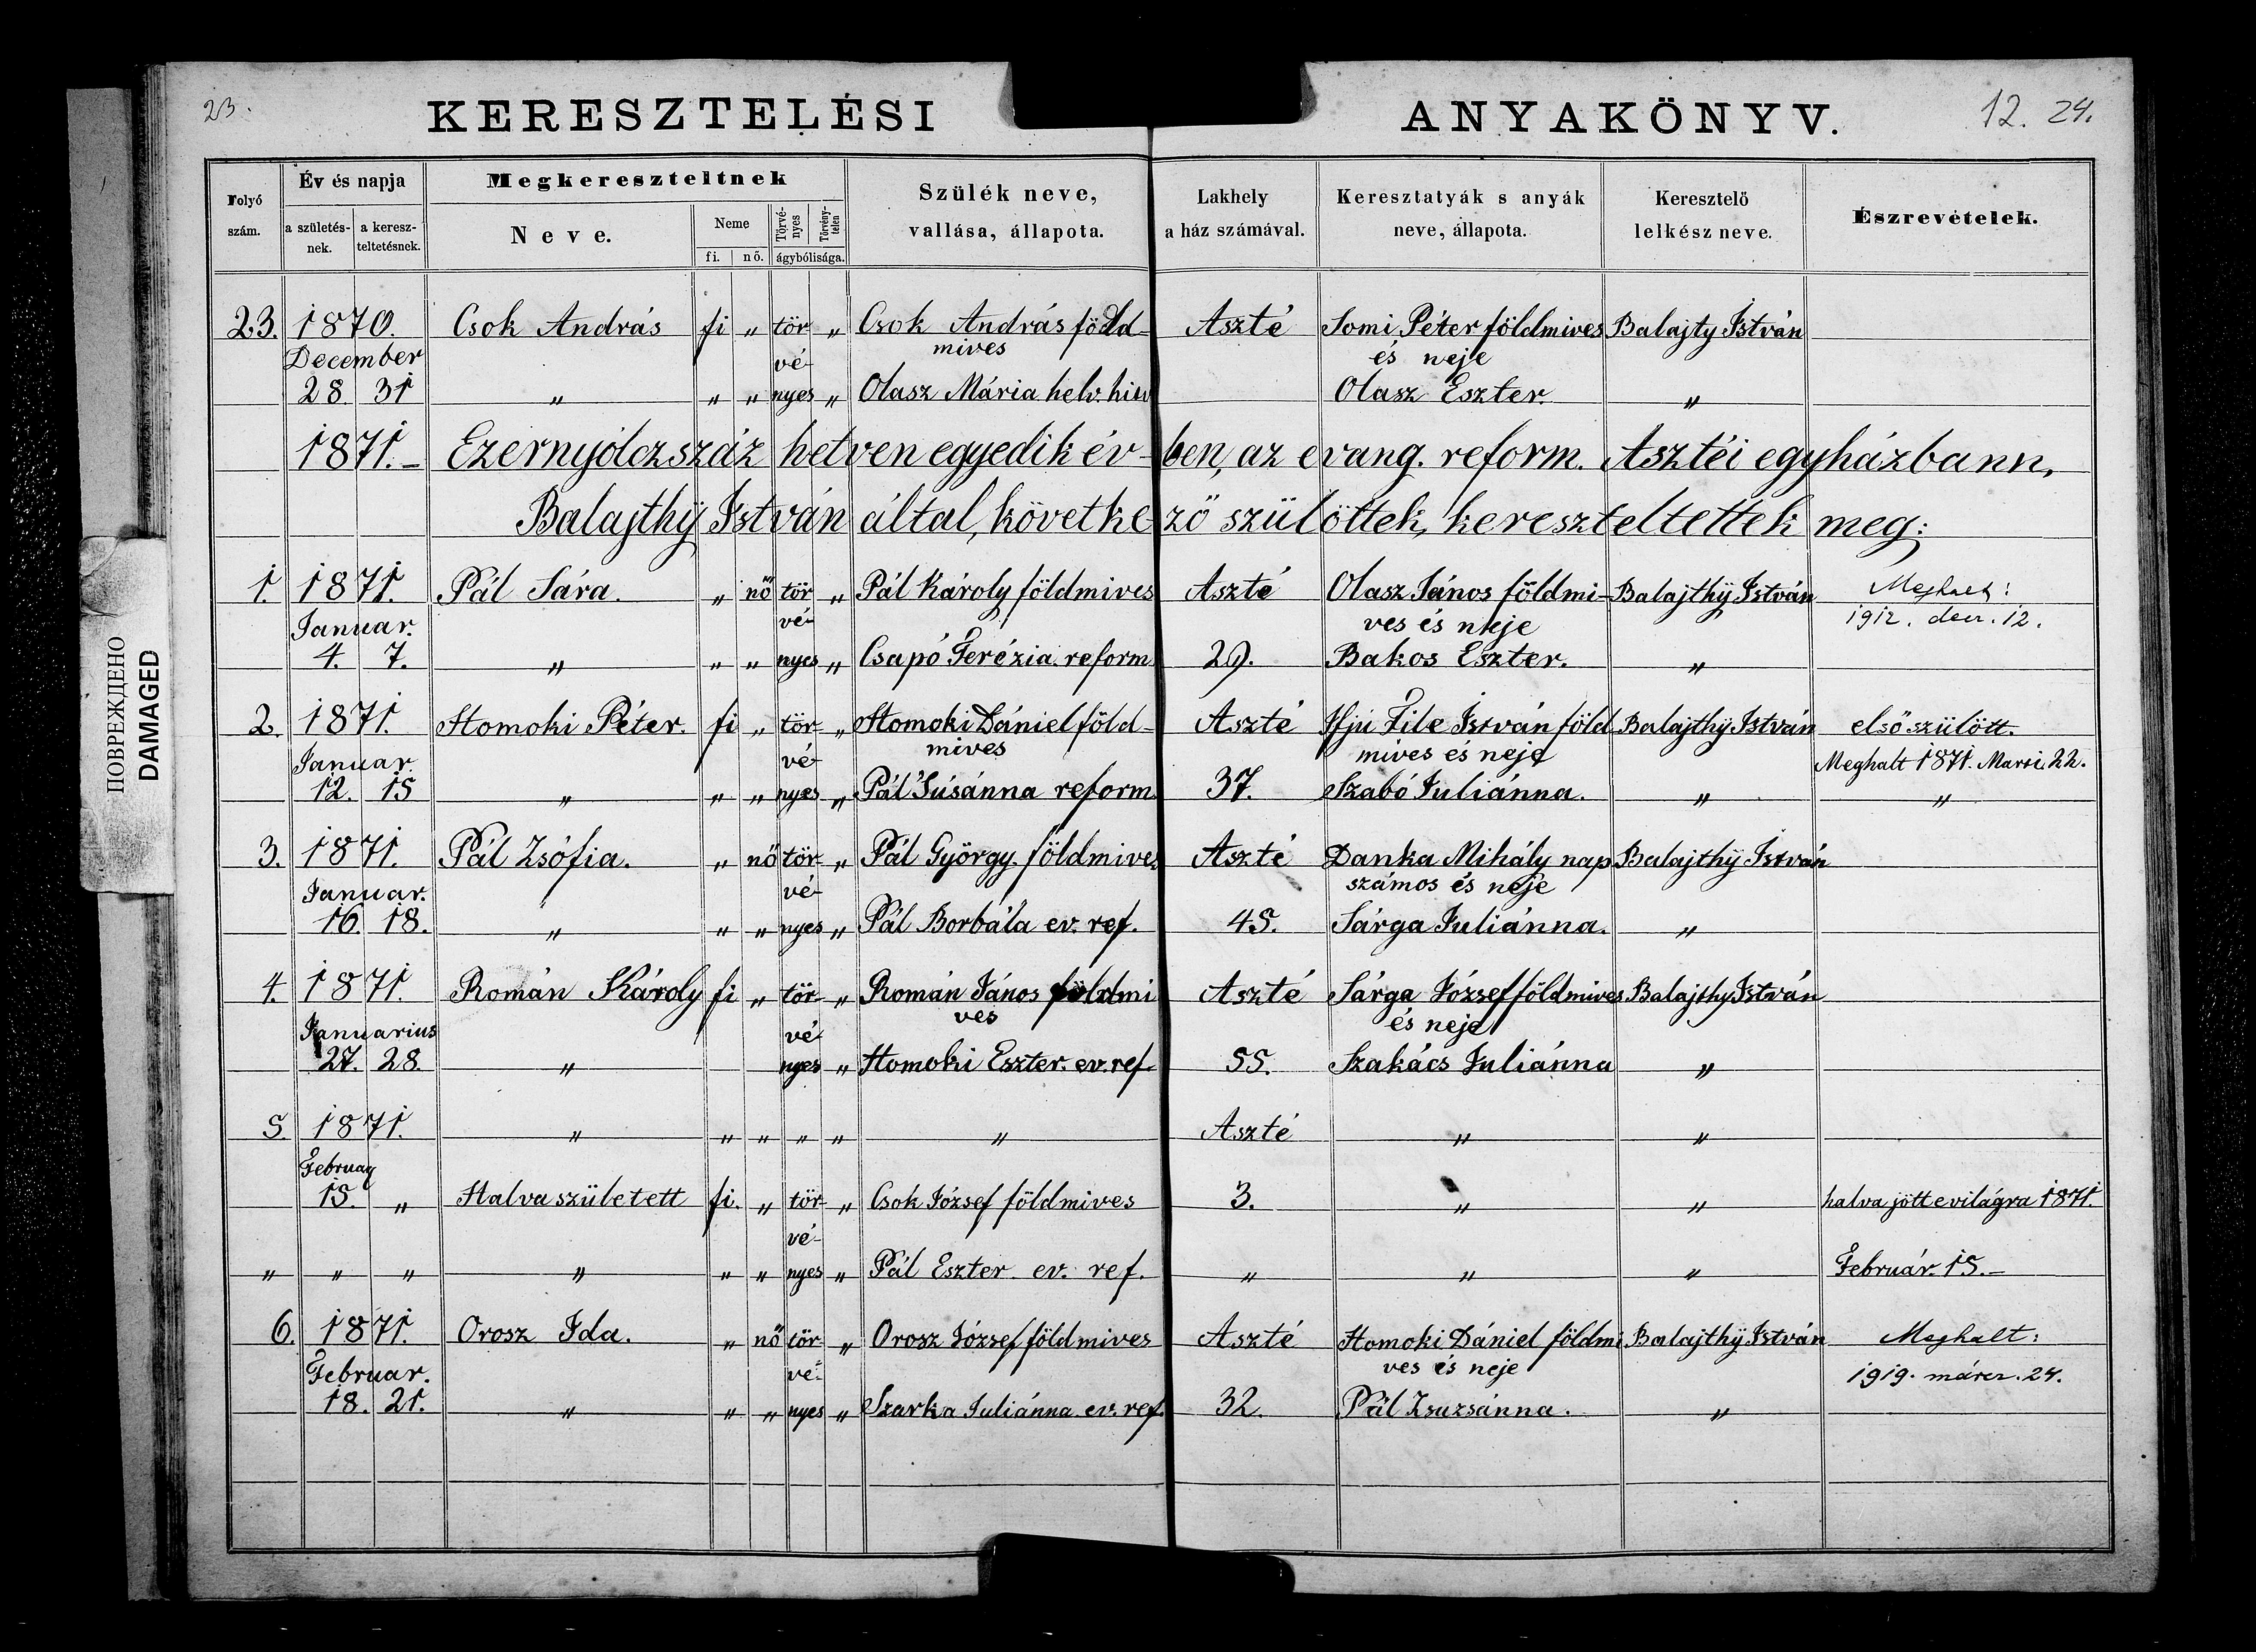 23.
KERESZTELÉSI ANYAKÖNYV.
12. 24.
Folyó szám.
Év és napja
a születésnek.
a keresz-teltetésnek.
Megkereszteltnek
Neve.
Neme
fi. nő.
Törvé-nyes
Törvény-telen
ágybólisága.
Szülék neve,
vallása, állapota.
Lakhely
a ház számával.
Keresztatyák s anyák
neve, állapota.
Keresztelő
lelkész neve.
Észrevételek.
23. 1870. Csok András fi „ tör „ Csok András föld- Aszté Somi Péter földmives Balajty István
December vé- mives és neje
28. 31 „ „ „ nyes „ Olasz Mária helv. hitv Olasz Eszter. „
1871.- Ezernyólczszáz hetven egyedik év-ben, az evang. reform. Asztéi egyházbann,
Balajthÿ István által, következő szülöttek, kereszteltettek meg:
1. 1871. Pál Sára. „ nő tör „ Pál Károly földmives Aszté Olasz János földmi- Balajthÿ István Meghalt:
Januar. vé- ves és neje 1912. decz. 12.
4. 7. „ „ „ nyes „ Csapó Terézia. reform 29. Bakos Eszter. „
2. 1871. Homoki Péter. fi „ tör- „ Homoki Dániel föld- Aszté Ifjú File István föld Balajthÿ István első szülött.
Januar. vé- mives mives és neje Meghalt 1871. Marti. 22.
12. 15 „ „ „ nyes „ Pál 'Súsánna reform 37. Szabó Juliánna. „ „
3. 1871. Pál Zsófia. „ nő tör- „ Pál György. földmives Aszté Danka Mihály nap Balajthÿ István
Januar. vé- számos és neje
16. 18. „ „ „ nyes „ Pál Borbála ev. ref. 45. Sárga Juliánna. „
4. 1871. Román Károly fi „ tör- „ Román János földmi Aszté Sárga József földmives Balajthy István
Januarius vé- ves és neje
27. 28. „ nyes „ Homoki Eszter. ev. ref. 55. Szakács Juliánna „
5. 1871. „ „ „ „ „ „ Aszté „ „
Februar
15. „ Halva született fi. „ tör- „ Csok József földmives 3. „ „ halva jött e világra 1871.
vé-
„ „ „ „ „ „ nyes „ Pál Eszter. ev. ref. „ „ „ Február. 15.-
6. 1871. Orosz Ida. „ nő tör- „ Orosz József földmives Aszté Homoki Dániel földmi Balajthÿ István Meghalt:
Februar. vé- ves és neje 1919. márcz. 24.
18. 21. „ „ „ nyes „ Szarka Juliánna. ev. ref. 32. Pál Zsuzsánna. „
ПОВРЕЖДЕНО
DAMAGED